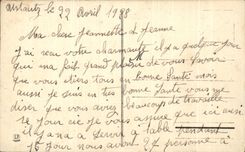 le 22 Avril 1938
Ma chère Jeannette et Jeanne
J'ai reçu votre charmante il y a quelque jour
qui m'a fait grand plaisir de vous savoir
que vous êtes tous en bonne santé moi
aussi je suis en très bonne santé vous me
dites que vous avez beaucoup de travaille
je vous assure que ici aussi
il y en a a servir a table pendant
15 jour nous avons 27 personne à